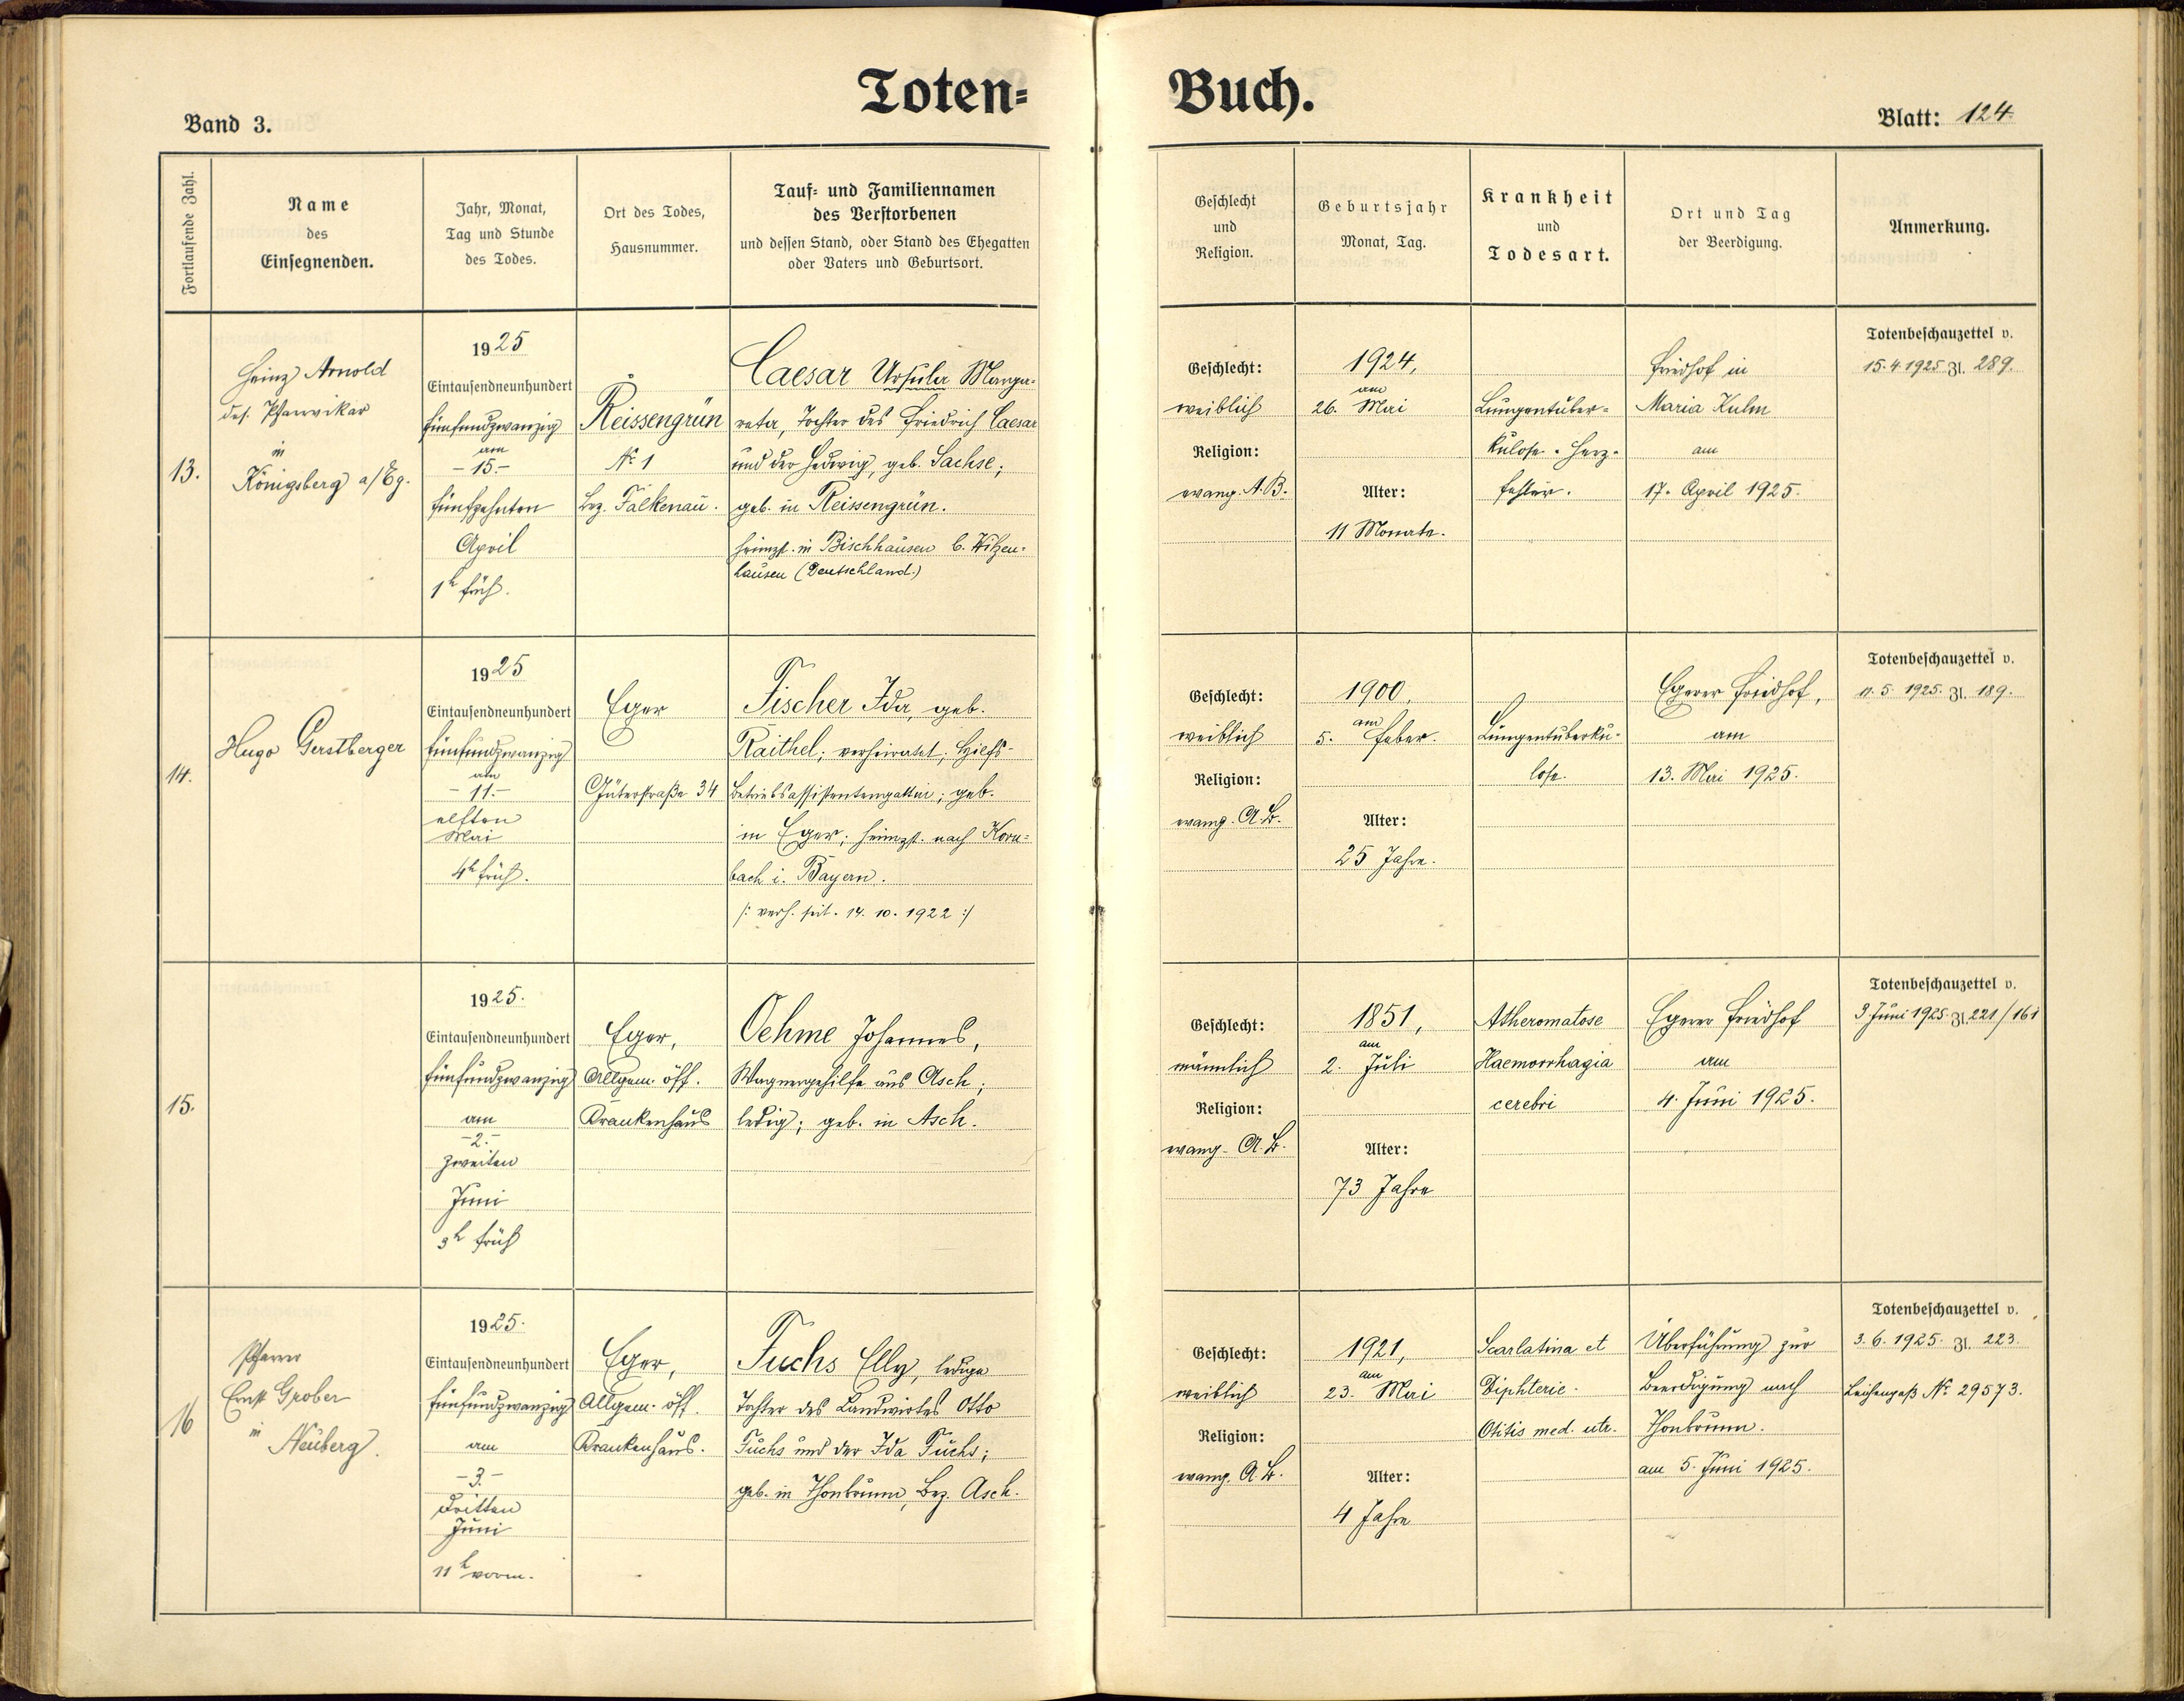 Toten-
Buch.
Band 3.
Blatt: 124
Fortlaufende Zahl.
Name
des
Einsegnenden.
Jahr, Monat,
Tag und Stunde
des Todes.
Ort des Todes,
Hausnummer.
Tauf- und Familiennamen
des Verstorbenen
und dessen Stand, oder Stand des Ehegatten
oder Vaters und Geburtsort.
Geschlecht
und
Religion.
Geburtsjahr
Monat, Tag.
Krankheit
und
Todesart.
Ort und Tag
der Beerdigung.
Anmerkung.
13.
Heinz Arnold
des. Pfarrvikar
in
Königsberg a/Eg.
1925
Eintausendneunhundert
fünfundzwanzig
am
- 15.-
fünfzehnten
April
1h früh.
Reissengrün
No 1
Bez. Falkenau.
Caesar Ursula Marga-
reta, Tochter des Friedrich Caesar
und der Hedwig, geb. Sachse;
geb. in Reissengrün.
heimzst. in Bischhausen b. Witzen-
hausen (Deutschland.)
Geschlecht:
weiblich
Religion:
evang. A.B.
1924,
am
26. Mai
Alter:
11 Monate.
Lungentuber-
kulose. Herz-
fehler.
Friedhof in
Maria Kulm
am
17. April 1925.
Totenbeschauzettel v.
15.4.1925 Zl. 289.
14.
Hugo Gerstberger
1925
Eintausendneunhundert
fünfundzwanzig
am
- 11.-
elften
Mai
4h früh.
Eger
Güterstraße 34
Fischer Ida, geb.
Raithel; verheiratet; Hilfs-
betriebsassistentengattin; geb.
in Eger; heimzst. nach Korn-
bach i. Bayern.
/: verh. seit. 14. 10. 1922 :/
Geschlecht:
weiblich
Religion:
evang. A.B.
1900,
am
5. Feber.
Alter:
25 Jahre.
Lungentuberku-
lose.
Egerer Friedhof,
am
13. Mai 1925.
Totenbeschauzettel v.
11. 5. 1925. Zl. 189.
15.
1925.
Eintausendneunhundert
fünfundzwanzig
am
-2.-
zweiten
Juni
3h früh
Eger,
Allgem. öff.
Krankenhaus
Oehme Johannes,
Wagnergehilfe aus Asch;
ledig; geb. in Asch.
Geschlecht:
männlich
Religion:
evang. A.B.
1851,
am
2. Juli
Alter:
73 Jahre
Atheromatose
Haemorrhagia
cerebri
Egerer Friedhof
am
4. Juni 1925.
Totenbeschauzettel v.
3 Juni 1925. Zl. 221/161
16
Pfarrer
Ernst Grober
in
Neuberg.
1925.
Eintausendneunhundert
fünfundzwanzig
am
-3.-
dritten
Juni
11h vorm.
Eger,
Allgem. öff.
Krankenhaus.
Fuchs Elly, ledige
Tochter des Landwirtes Otto
Fuchs und der Ida Fuchs;
geb. in Thonbrunn, Bez. Asch.
Geschlecht:
weiblich
Religion:
evang. A.B.
1921,
am
23. Mai
Alter:
4 Jahre
Scarlatina et
Diphterie.
Otitis med. utr.
Überführung zur
Beerdigung nach
Thonbrunn.
am 5. Juni 1925.
Totenbeschauzettel v.
3. 6. 1925. Zl. 223.
Leichenpaß No 29573.